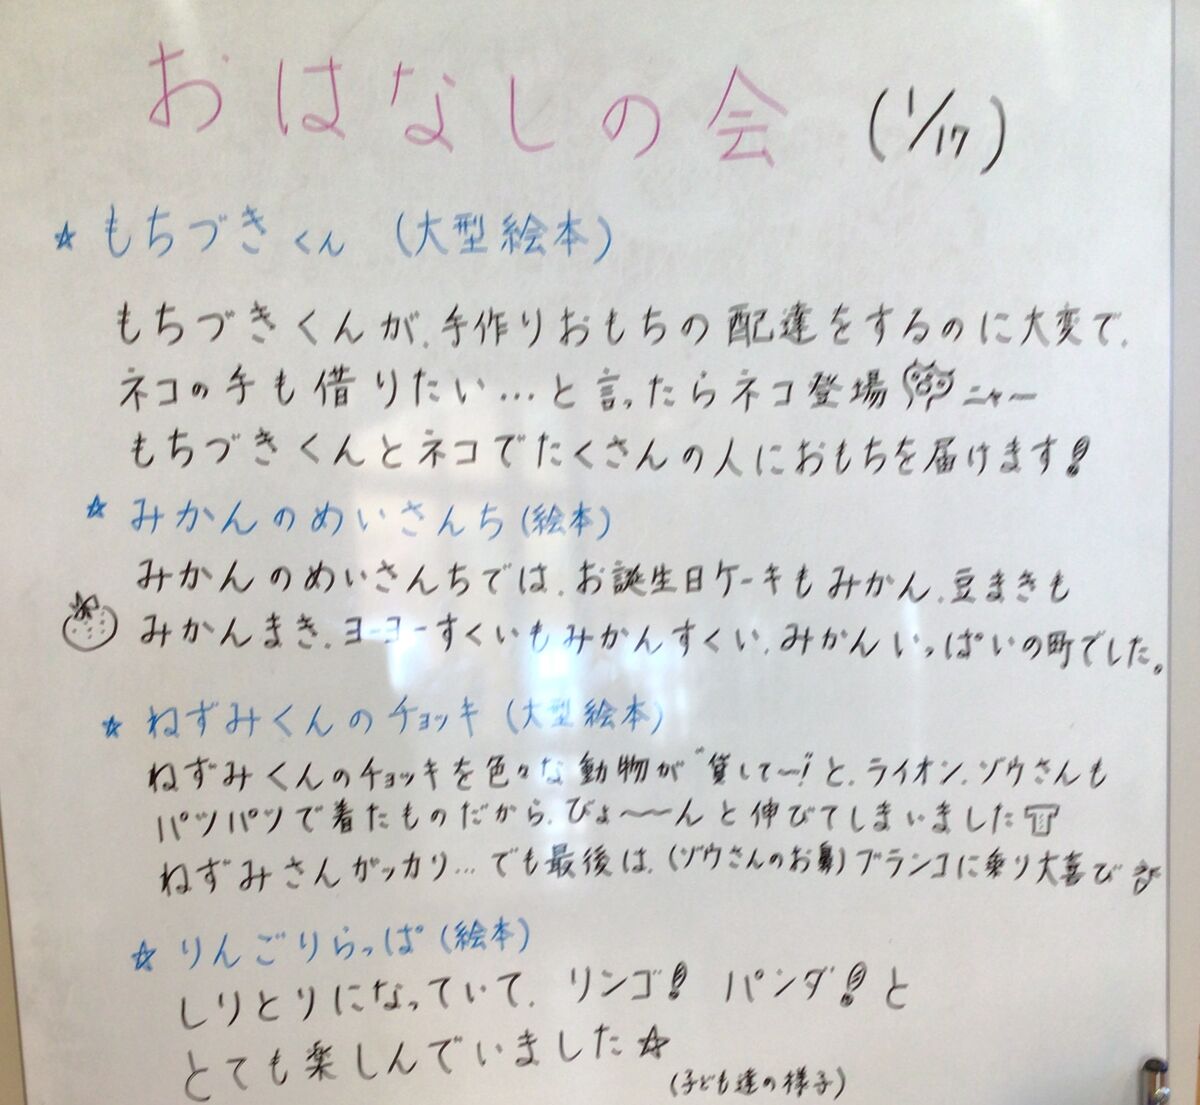 おはなしの会 (1/17)
☆ もちづきくん (大型絵本)
もちづきくんが、手作りおもちの配達をするのに大変で、
ネコの手も借りたい…と言ったらネコ登場 ニャー
もちづきくんとネコでたくさんの人におもちを届けます!
☆ みかんのめいさんち (絵本)
みかんのめいさんちでは、お誕生日ケーキもみかん、豆まきも
みかんまき、ヨーヨーすくいもみかんすくい、みかんいっぱいの町でした。
☆ ねずみくんのチョッキ (大型絵本)
ねずみくんのチョッキを色々な動物が“貸して〜!”と、ライオン、ゾウさんも
パツパツで着たものだから、びょ〜〜んと伸びてしまいました
ねずみさんガッカリ…でも最後は、(ゾウさんのお鼻)ブランコに乗り大喜び
☆ りんごりらっぱ (絵本)
しりとりになっていて、リンゴ! パンダ!と
とても楽しんでいました☆
(子ども達の様子)